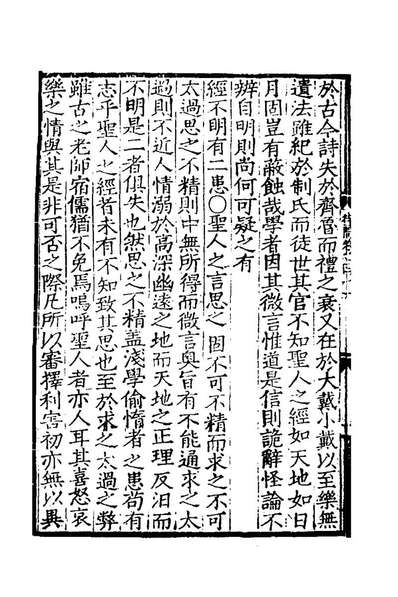 於古今詩失於齊魯而禮之衰又在於大戴小戴以至樂無
遺法雖紀於制氏而徒世其官不知聖人之經如天地如日
月固豈有蔽蝕哉學者因其微言惟道是信則詭辭怪論不
辨自明則尚何可疑之有
經不明有二患○聖人之言思之固不可不精而求之不可
太過思之不精則中無所得而微言奧旨有不能通求之太
過則不近人情溺於高深幽遠之地而天地之正理反汩而
不明是二者俱失也然思之不精蓋淺學偷惰者之患茍有
志乎聖人之經者未有不知致其思也至於求之太過之弊
雖古之老師宿儒猶不免焉嗚呼聖人者亦人耳其喜怒哀
樂之情與其是非可否之際凡所以審擇利害初亦無以異